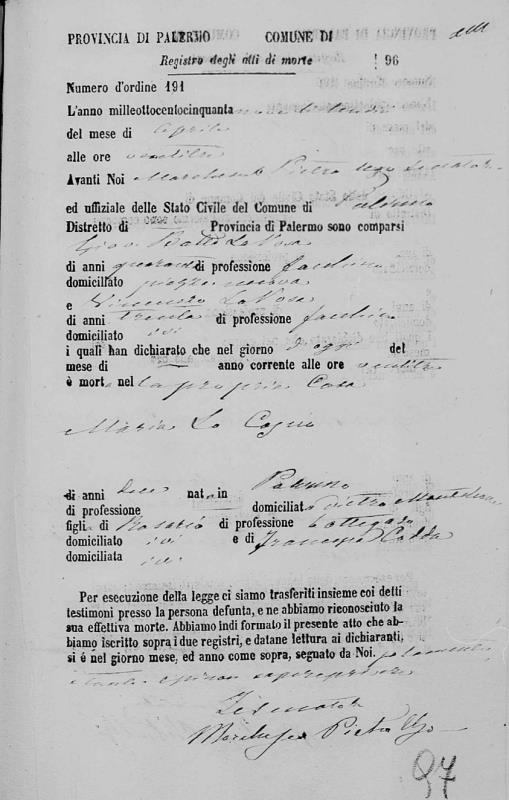 PROVINCIA DI PALERMO COMUNE DI
Registro degli atti di morte 96
Numero d'ordine 191
L'anno milleottocentocinquanta
del mese di Aprile
alle ore ventitre
Avanti Noi Pietro Ugo Senatore
ed uffiziale dello Stato Civile del Comune di Palermo
Distretto di Provincia di Palermo sono comparsi
Giov. Batta La Rosa
di anni quaranta di professione
domiciliato piazza nuova
e Vincenzo La Rosa
di anni trenta di professione
domiciliato ivi
i quali han dichiarato che nel giorno d'oggi del
mese di anno corrente alle ore ventitre
è mort. nel la propria Casa
Maria Lo
di anni dieci nat. in Palermo
di professione domiciliat. a
figli. di Rosario di professione bottegaro
domiciliato ivi e di Francesca
domiciliata ivi
Per esecuzione della legge ci siamo trasferiti insieme coi detti
testimoni presso la persona defunta, e ne abbiamo riconosciuto la
sua effettiva morte. Abbiamo indi formato il presente atto che ab-
biamo iscritto sopra i due registri, e datane lettura ai dichiaranti,
si é nel giorno mese, ed anno come sopra, segnato da Noi.
Il Senatore
Pietro Ugo
97